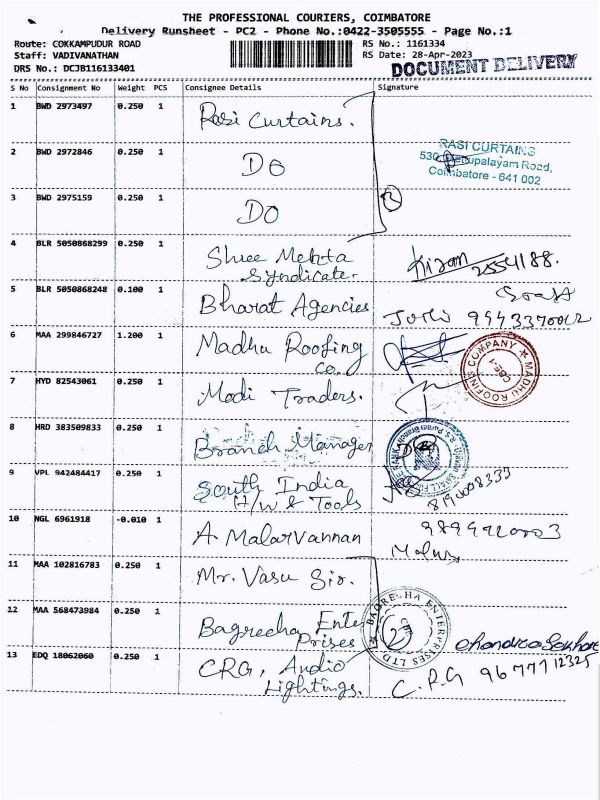 THE PROFESSIONAL COURIERS, COIMBATORE
Delivery Runsheet - PC2 - Phone No.:0422-3505555 - Page No.:1
Route: COKKAMPUDUR ROAD
Staff: VADIVANATHAN
DRS No.: DCJB116133401
RS No.: 1161334
RS Date: 28-Apr-2023
DOCUMENT DELIVERY
S No Consignment No Weight PCS Consignee Details Signature
1 BWD 2973497 0.250 1 Rasi Curtains.
2 BWD 2972846 0.250 1 DO
RASI CURTAINS
Coimbatore - 641 002
3 BWD 2975159 0.250 1 DO
4 BLR 5050868299 0.250 1 Shree Mehta
Syndicate.
Kiran
5 BLR 5050868248 0.100 1 Bharat Agencies
6 MAA 299846727 1.200 1 Madhu Roofing
Co.
MADHU ROOFING COMPANY
CBE-1
7 HYD 82543061 0.250 1 Modi Traders.
8 HRD 383509833 0.250 1 Branch Manager
9 VPL 942484417 0.250 1 South India
H/W & Tools
8190008333
10 NGL 6961918 -0.010 1 A Malarvannan
11 MAA 102816783 0.250 1 Mr. Vasu Sir.
12 MAA 568473984 0.250 1 Bagrecha Enter
Prises
BAGRECHA ENTERPRISES LTD
13 EDQ 18062060 0.250 1 CRG, Audio
Lightings.
C.R.G 9677712325